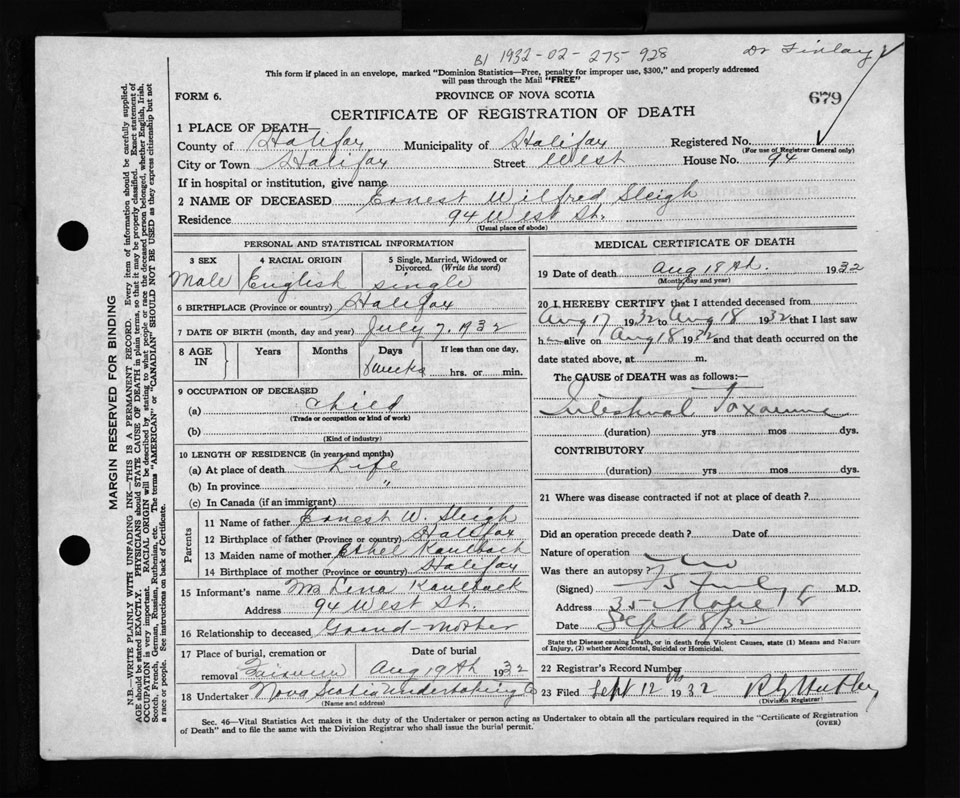 B1 1932-02-275-928
Dr Finlay
This form if placed in an envelope, marked "Dominion Statistics—Free, penalty for improper use, $300," and properly addressed
will pass through the Mail "FREE"
FORM 6.
PROVINCE OF NOVA SCOTIA
679
CERTIFICATE OF REGISTRATION OF DEATH
1 PLACE OF DEATH—
County of Halifax Municipality of Halifax Registered No.
(For use of Registrar General only)
City or Town Halifax Street West House No. 94
If in hospital or institution, give name
2 NAME OF DECEASED Ernest Wilfred Sleigh
Residence 94 West St.
(Usual place of abode)
PERSONAL AND STATISTICAL INFORMATION
3 SEX 4 RACIAL ORIGIN 5 Single, Married, Widowed or
Divorced. (Write the word)
Male English single
6 BIRTHPLACE (Province or country) Halifax
7 DATE OF BIRTH (month, day and year) July 7, 1932
8 AGE IN Years Months Days If less than one day,
weeks hrs. or min.
9 OCCUPATION OF DECEASED
(a) Child
(Trade or occupation or kind of work)
(b)
(Kind of industry)
10 LENGTH OF RESIDENCE (in years and months)
(a) At place of death Life
(b) In province "
(c) In Canada (if an immigrant)
Parents
11 Name of father Ernest W. Sleigh
12 Birthplace of father (Province or country) Halifax
13 Maiden name of mother Ethel Kaulback
14 Birthplace of mother (Province or country) Halifax
15 Informant's name Mrs Lena Kaulback
Address 94 West St.
16 Relationship to deceased Grand-mother
17 Place of burial, cremation or Date of burial
removal Fairview Aug 19th 1932
18 Undertaker Nova Scotia Undertaking Co
(Name and address)
MEDICAL CERTIFICATE OF DEATH
19 Date of death Aug 18th. 1932
(Month, day and year)
20 I HEREBY CERTIFY that I attended deceased from
Aug 17 1932 to Aug 18 1932 that I last saw
h alive on Aug 18 1932 and that death occurred on the
date stated above, at m.
The CAUSE of DEATH was as follows:—
Intestinal Toxaemia
(duration) yrs mos dys.
CONTRIBUTORY
(duration) yrs mos dys.
21 Where was disease contracted if not at place of death?
Did an operation precede death? Date of
Nature of operation
Was there an autopsy? No
(Signed) M.D.
Address 35
Date Sept 8/32
State the Disease causing Death, or in death from Violent Causes, state (1) Means and Nature
of Injury, (2) whether Accidental, Suicidal or Homicidal.
22 Registrar's Record Number
23 Filed Sept 12th 1932
(Division Registrar)
Sec. 46—Vital Statistics Act makes it the duty of the Undertaker or person acting as Undertaker to obtain all the particulars required in the "Certificate of Registration
of Death" and to file the same with the Division Registrar who shall issue the burial permit. (OVER)
MARGIN RESERVED FOR BINDING
N.B.—WRITE PLAINLY WITH UNFADING INK—THIS IS A PERMANENT RECORD. Every item of information should be carefully supplied.
AGE should be stated EXACTLY. PHYSICIANS should STATE CAUSE OF DEATH in plain terms, so that it may be properly classified. Exact statement of
OCCUPATION is very important. RACIAL ORIGIN will be described by stating to what people or race the deceased person belonged, whether English, Irish,
Scotch, French, German, Russian, Ruthenian, etc. The terms "AMERICAN" or "CANADIAN" SHOULD NOT BE USED as they express citizenship but not
a race or people. See instructions on back of Certificate.